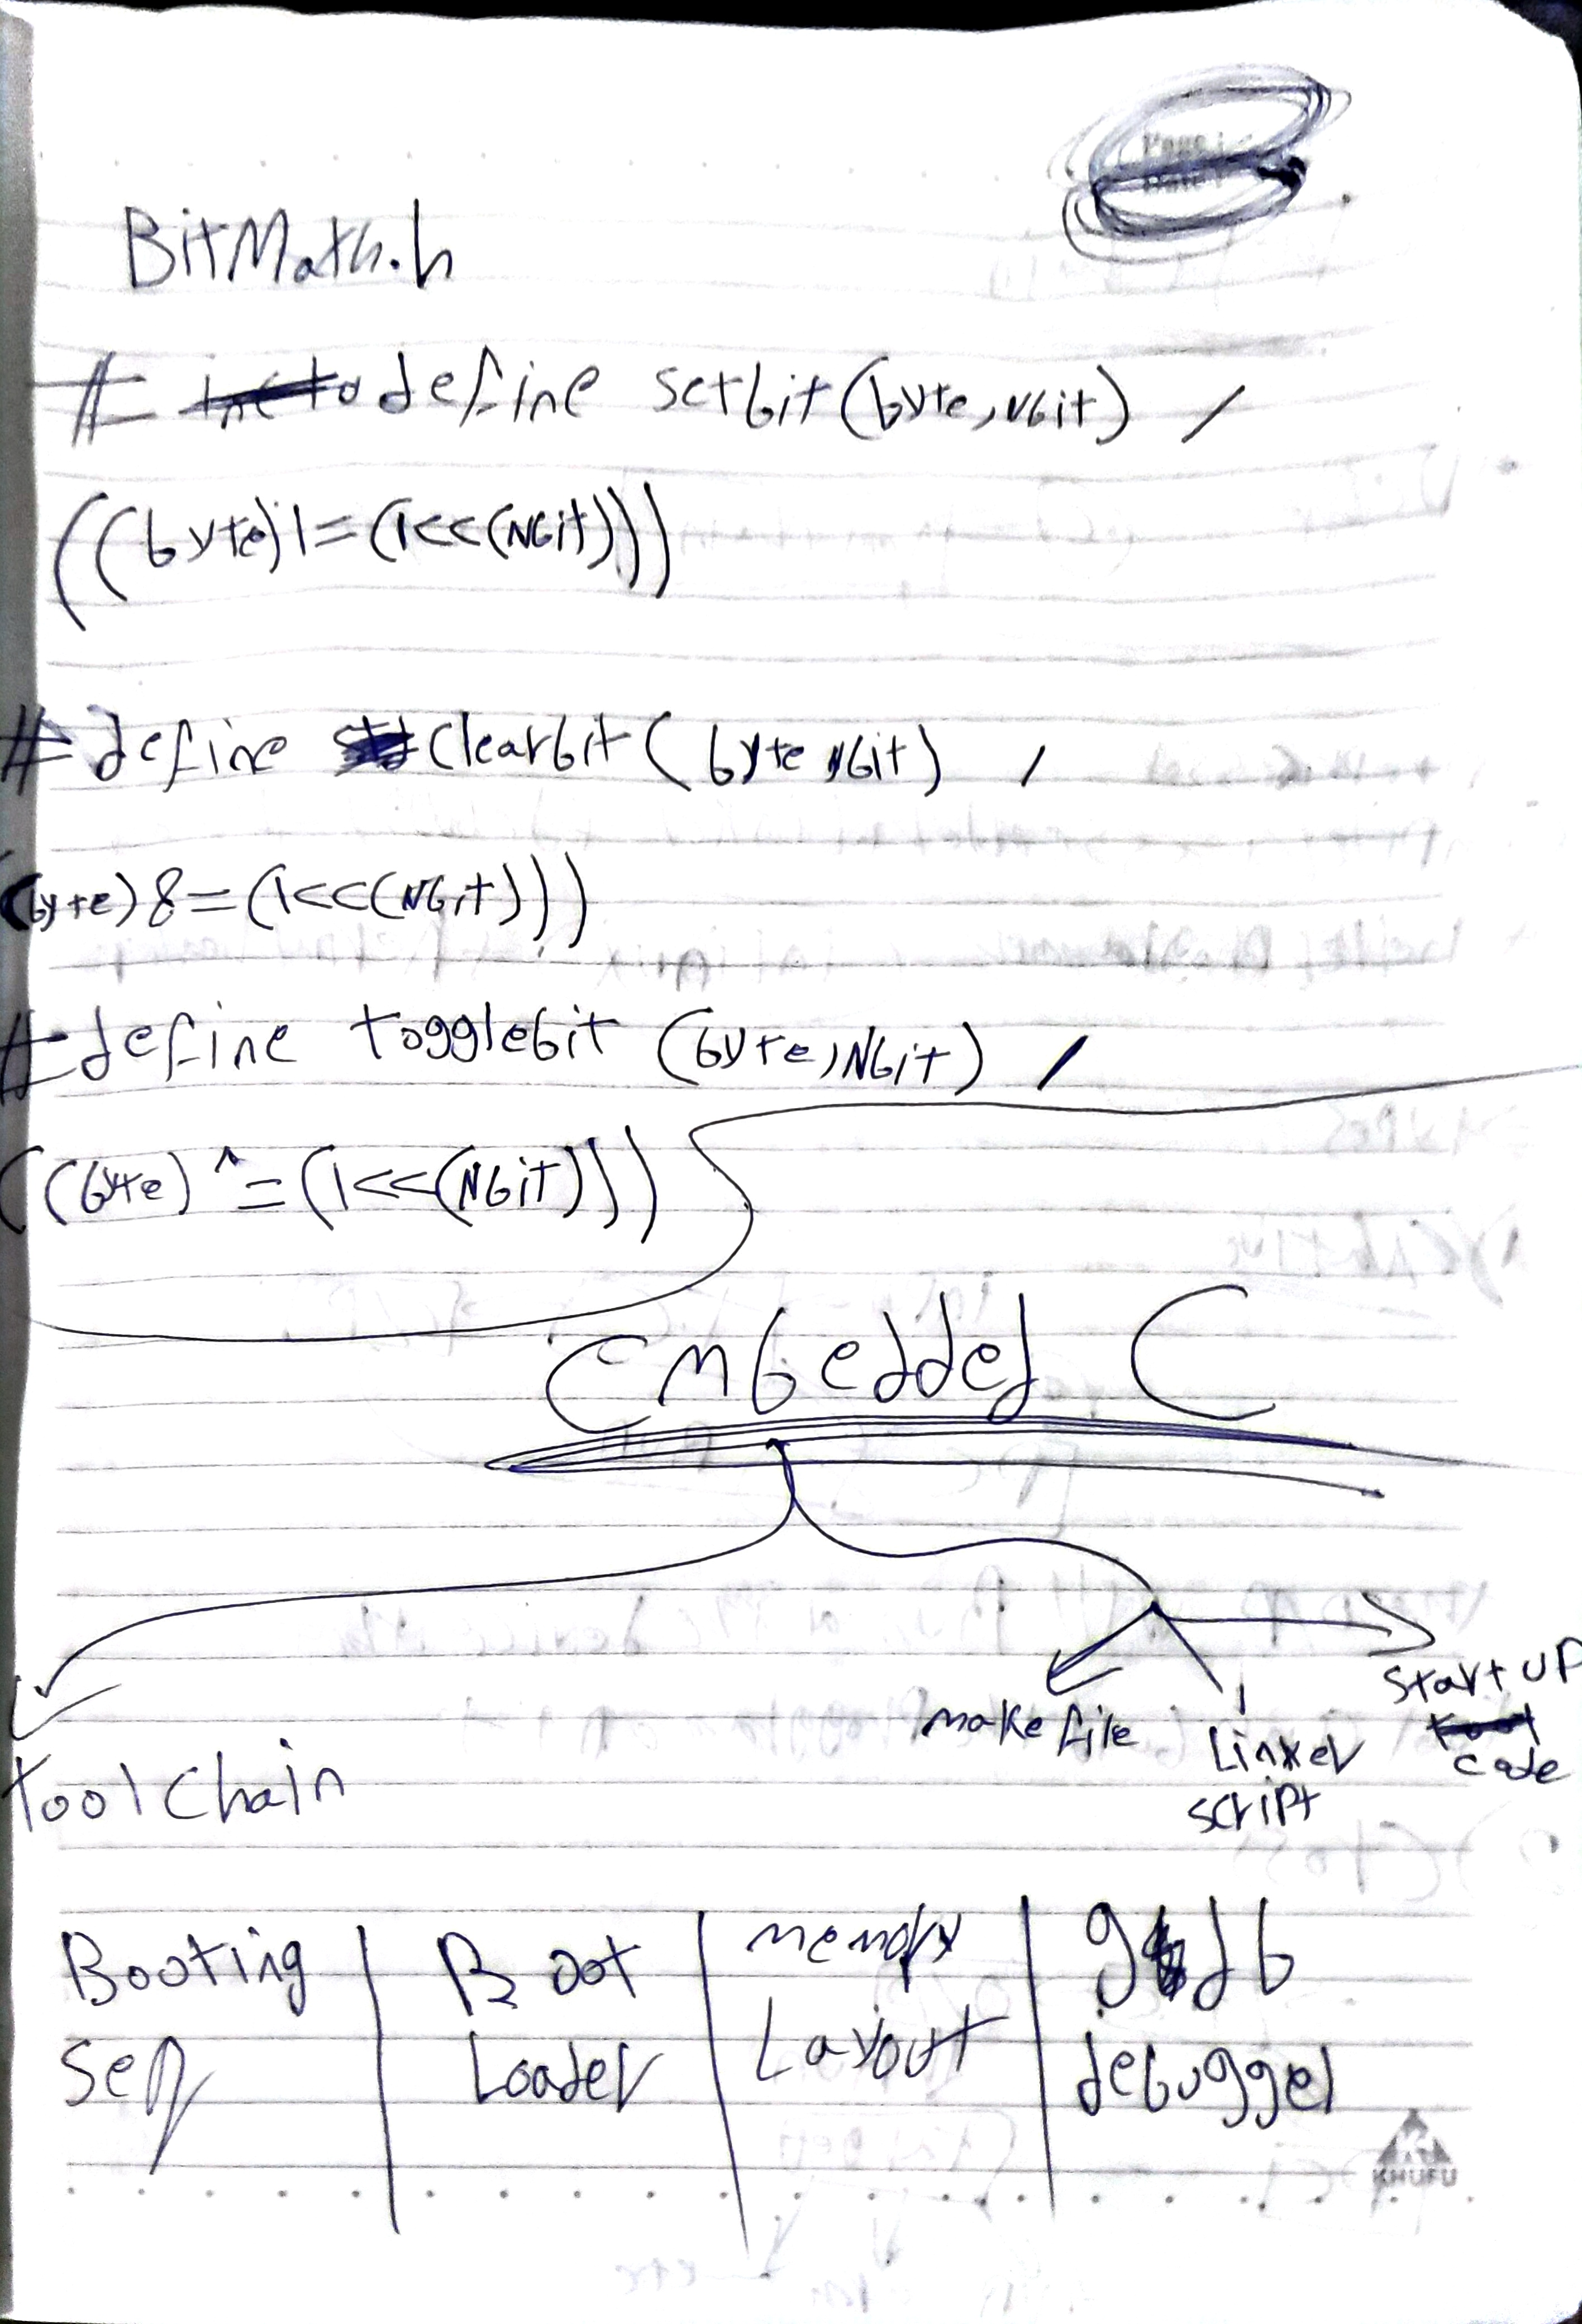 Page :
Date :
BitMath.h
# define setbit(byte,Nbit) /
((byte)|=(1<<(Nbit)))
#define clearbit(byte,Nbit) /
(byte)&=(1<<(Nbit)))
#define togglebit (byte,Nbit) /
((byte)^=(1<<(Nbit)))
Embedded C
makefile
Linker
script
Startup
code
toolchain
Booting
seq
Boot
Loader
memory
Layout
gdb
debugger
KHUFU